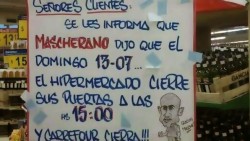 SEÑORES CLIENTES.
SE LES INFORMA QUE
MASCHERANO DIJO QUE EL
DOMINGO 13-07...
EL HIPERMERCADO CIERRE
SUS PUERTAS A LAS
HS 15:00
Y CARREFOUR CIERRA!!!